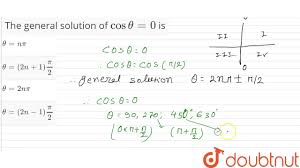 The general solution of cos θ = 0 is
θ = nπ
θ = (2n + 1) π/2
θ = 2nπ
θ = (2n − 1) π/2
II I
III IV
cos θ = 0
∴ cos θ = cos (π/2)
∴ general solution θ = 2nπ ± π/2
∴ cos θ = 0
θ = 90, 270, 450, 630
(0×π + π/2) (π + π/2)
doubtnut